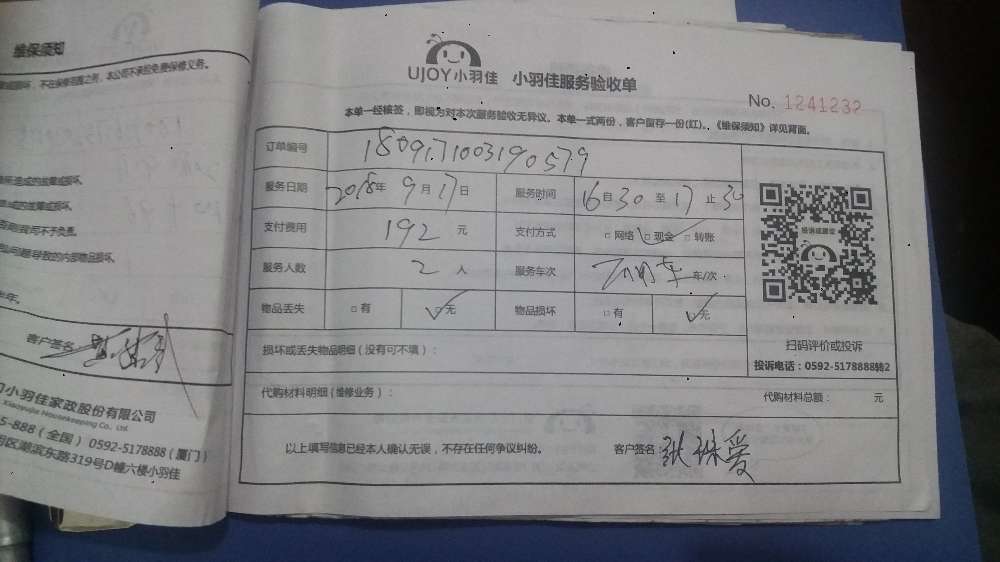 维保须知
不在保修范围之内，本公司不承担免费保修义务。
客户签名
小羽佳家政股份有限公司
Xiaoyujia Housekeeping Co., Ltd.
5-888（全国）0592-5178888（厦门）
区湖滨东路319号D幢六楼小羽佳
UJOY小羽佳 小羽佳服务验收单
No. 1241232
本单一经核签，即视为对本次服务验收无异议。本单一式两份，客户留存一份(红)。《维保须知》详见背面。
订单编号 1809171003190579
服务日期 2018年9月17日 服务时间 16自30至17止30
支付费用 192元 支付方式 □网络 ☑现金 □转账
服务人数 2人 服务车次 车/次
物品丢失 □有 ☑无 物品损坏 □有 ☑无
投诉或建议
扫码评价或投诉
投诉电话：0592-5178888转2
损坏或丢失物品明细（没有可不填）：
代购材料明细（维修业务）： 代购材料总额： 元
以上填写信息已经本人确认无误，不存在任何争议纠纷。 客户签名：张珠爱